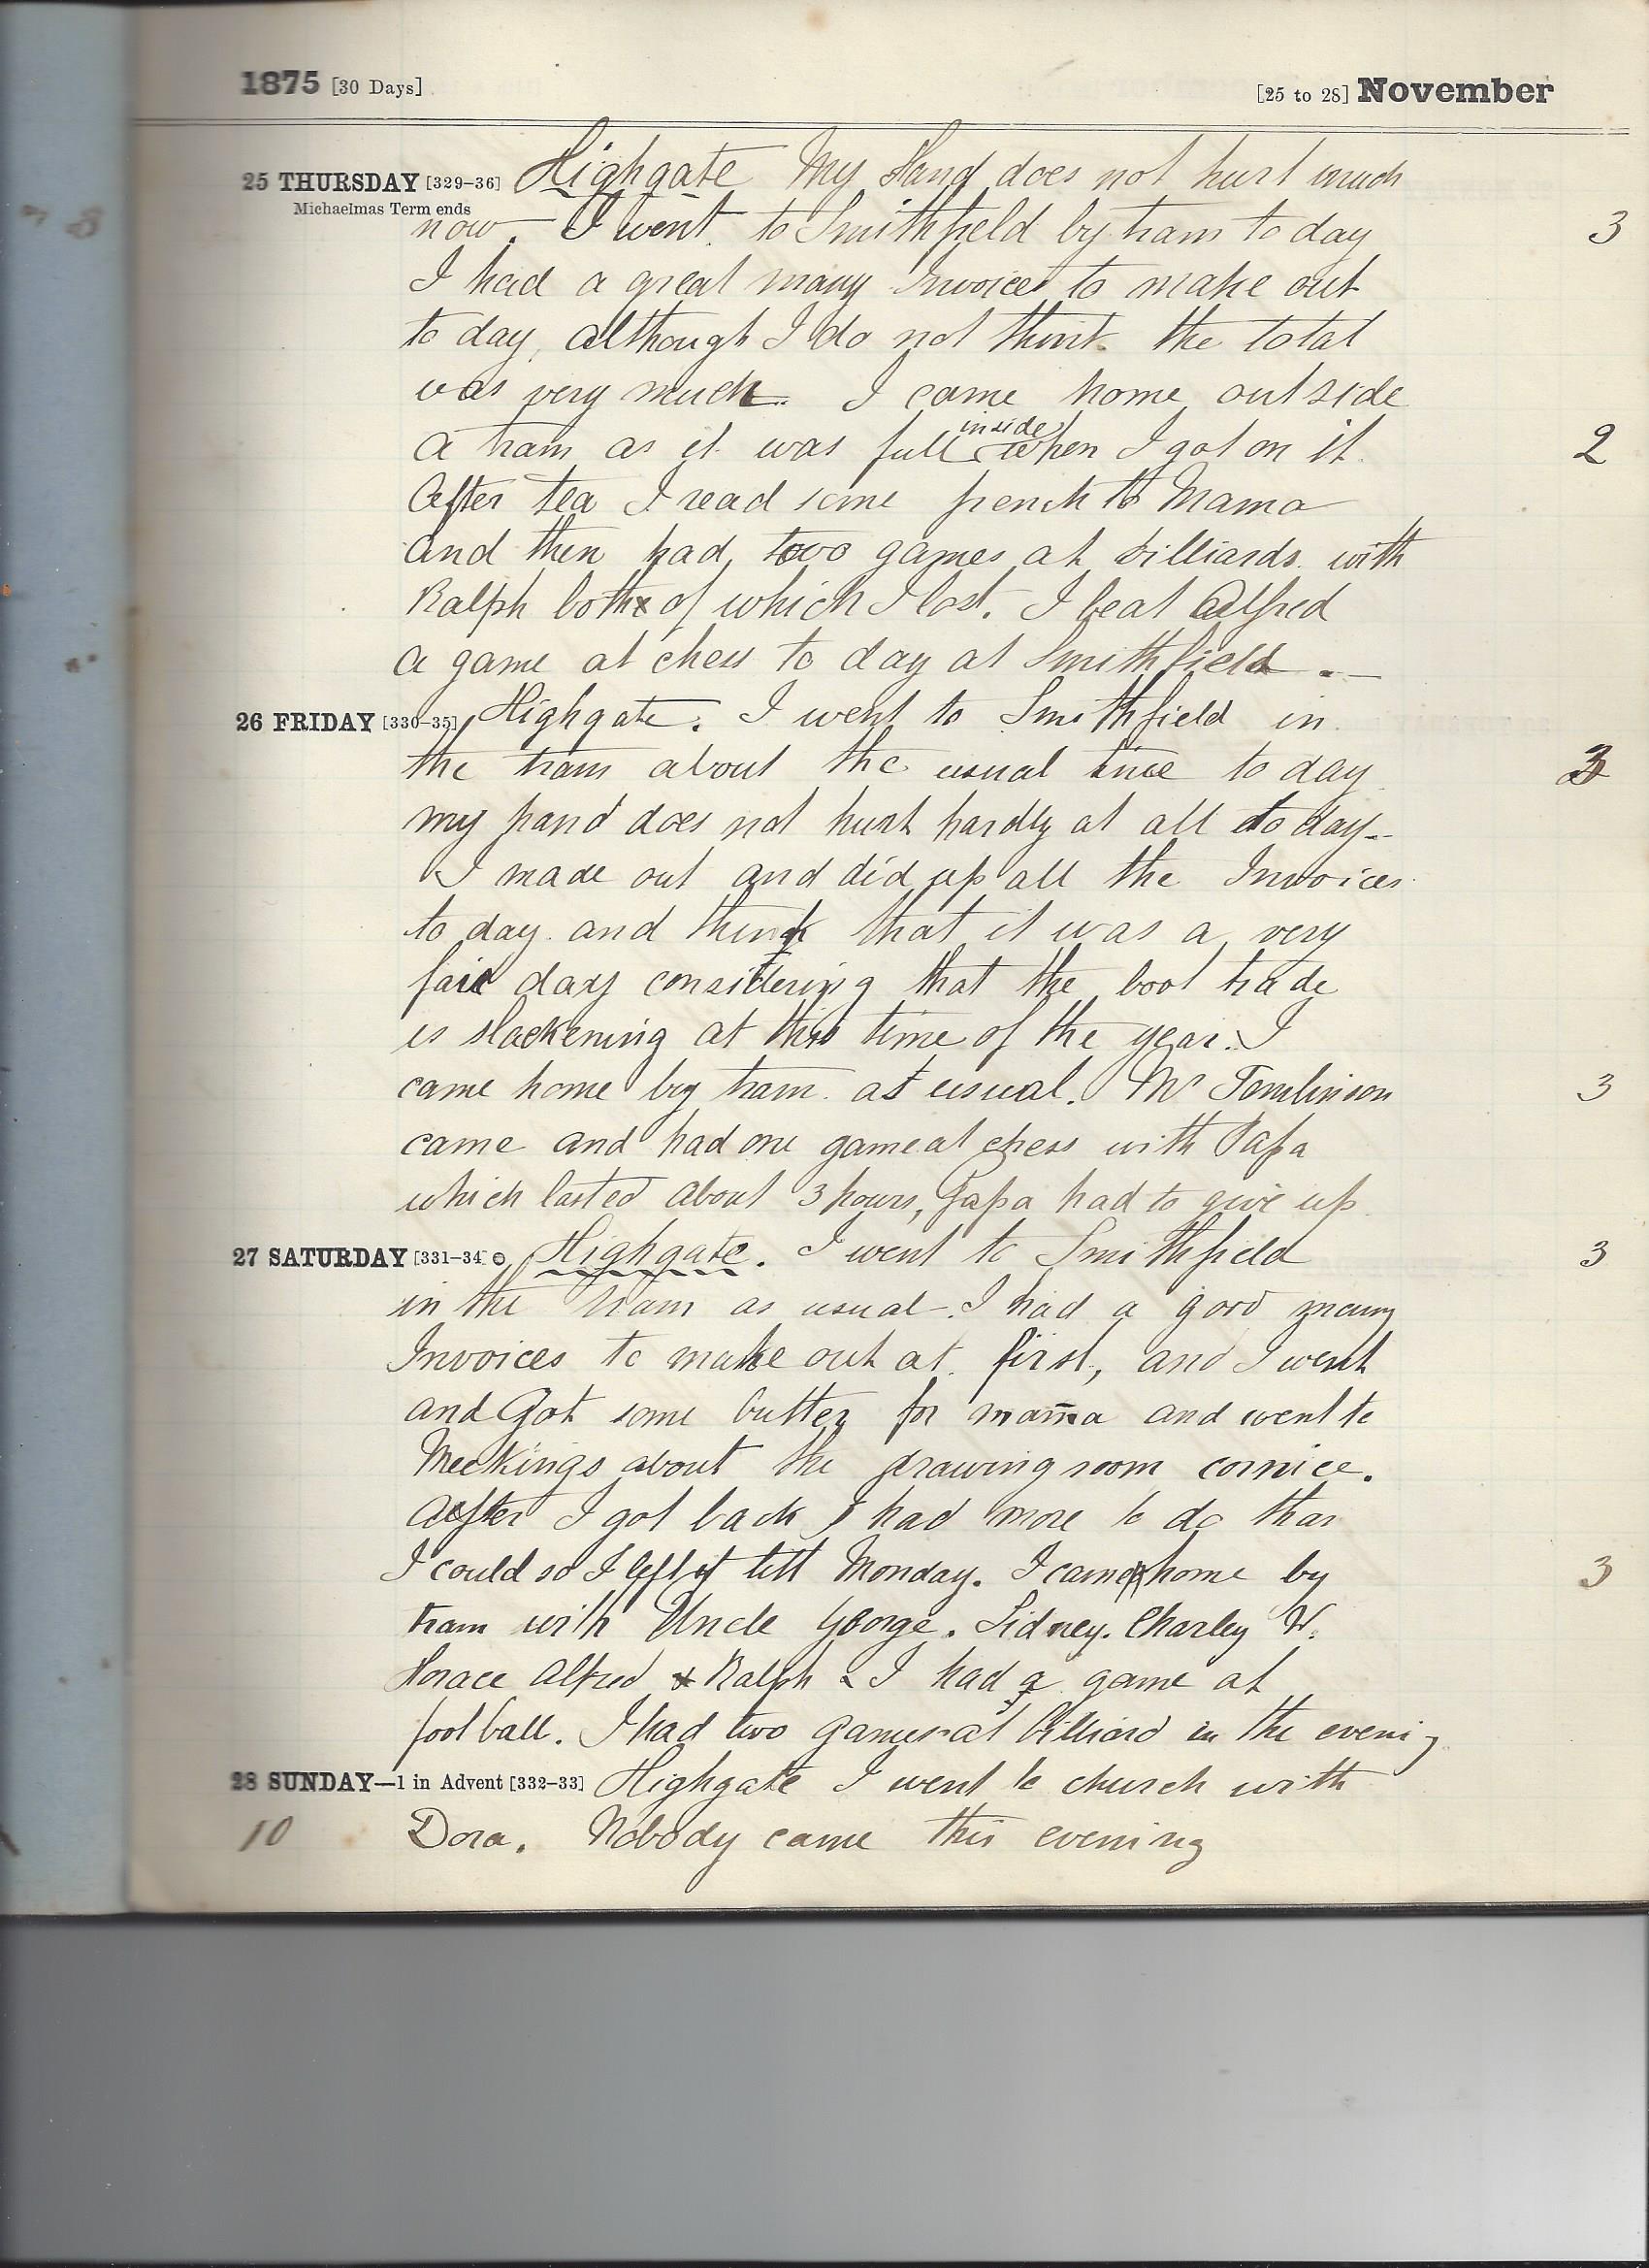 1875 [30 Days] [25 to 28] November
25 THURSDAY [329-36] Highgate My Hand does not hurt much
Michaelmas Term ends
now. I went to Smithfield by tram to day 3
I had a great many Invoices to make out
to day, although I do not think the total
was very much. I came home outside
inside
a tram as it was full when I got on it. 2
After tea I read some french to Mama
and then had two games at billiards with
Ralph both of which I lost. I beat Alfred
a game at chess to day at Smithfield.—
26 FRIDAY [330-35] Highgate. I went to Smithfield in
the tram about the usual time to day 3
my hand does not hurt hardly at all to day—
I made out and did up all the Invoices
to day and think that it was a very
fair day considering that the boot trade
is slackening at this time of the year. I
came home by tram as usual. Mr Tomlinson 3
came and had one game at chess with Papa
which lasted about 3 hours, Papa had to give up
27 SATURDAY [331-34] Highgate. I went to Smithfield 3
in the tram as usual. I had a good many
Invoices to make out at first, and I went
and Got some butter for mama and went to
Meekings about the drawing room cornice.
After I got back I had more to do than
I could so I left it till Monday. I came home by 3
tram with Uncle George. Sidney. Charley W.
Horace Alfred & Ralph & I had a game at
foot ball. I had two games at billiard in the evening
28 SUNDAY—1 in Advent [332-33] Highgate I went to church with
10 Dora. Nobody came this evening